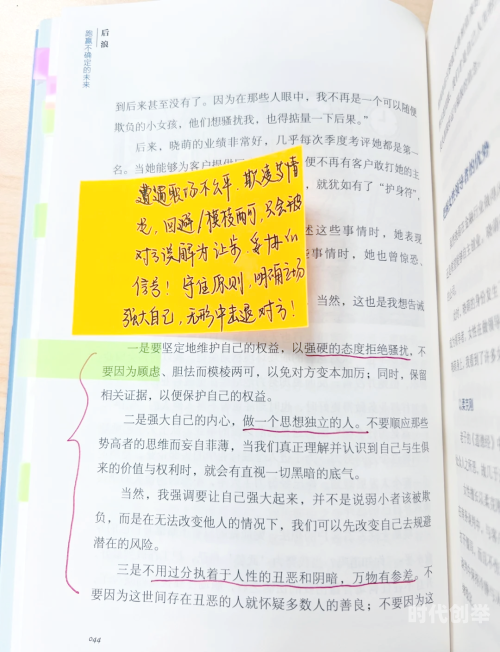 后浪
跑赢不确定的未来
到后来甚至没有了。因为在那些人眼中，我不再是一个可以随便
欺负的小女孩，他们想骚扰我，也得掂量一下后果。”
后来，晓萌的业绩非常好，几乎每次季度考评她都是第一
名。当她能够为客户提供
便不再有客户敢打她的主
就犹如有了“护身符”，
述这些事情时，她表现
事情时，她也曾惊恐、
当然，这也是我想告诫
遭遇职场不公平、欺凌等情
况，回避/模棱两可，只会被
对方误解为让步、妥协和
信号！守住原则，明确立场
强大自己，无形中击退对方！
一是要坚定地维护自己的权益，以强硬的态度拒绝骚扰，不
要因为顾虑、胆怯而模棱两可，以免对方变本加厉；同时，保留
相关证据，以便保护自己的权益。
二是强大自己的内心，做一个思想独立的人。不要顺应那些
势高者的思维而妄自菲薄，当我们真正理解并认识到自己与生俱
来的价值与权利时，就会有直视一切黑暗的底气。
当然，我强调要让自己强大起来，并不是说弱小者该被欺
负，而是在无法改变他人的情况下，我们可以先改变自己去规避
潜在的风险。
三是不用过分执着于人性的丑恶和阴暗，万物有参差。不
要因为这世间存在丑恶的人就怀疑多数人的善良；不要因为这
044
时代创举